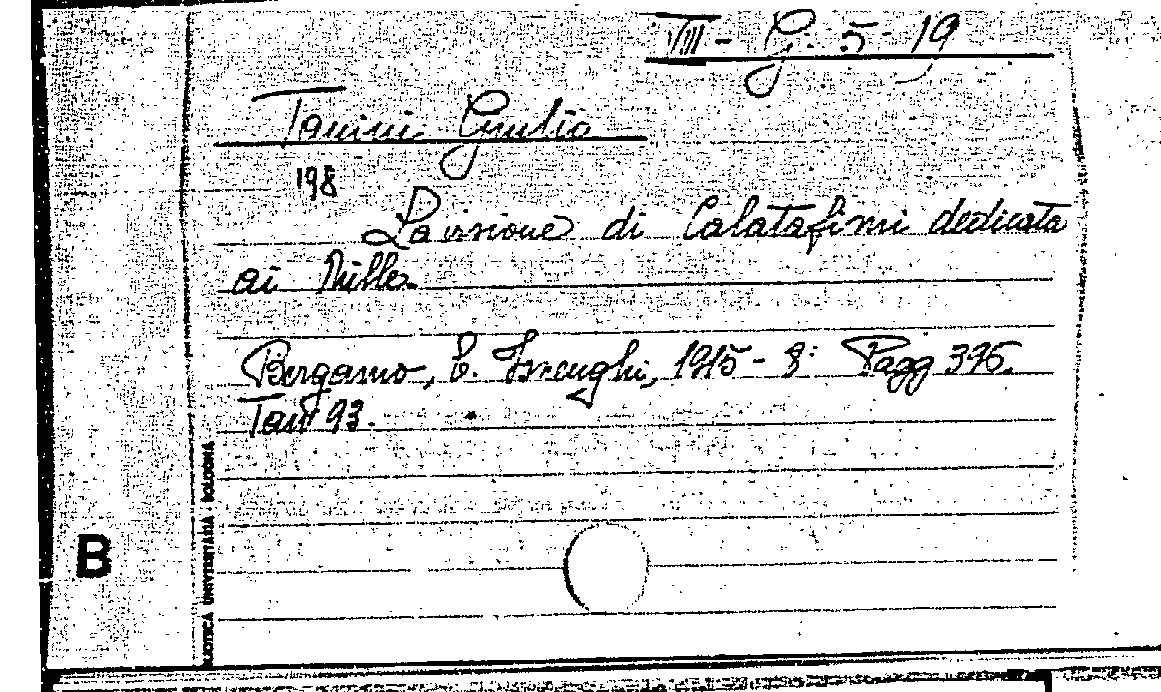 VIII - G. 5 - 19
Tanini Giulio
198
La visione di Calatafimi dedicata
ai Mille.
Bergamo, 1915 - 8º Pagg 376.
Tav 93.
BIBLIOTECA UNIVERSITARIA - BOLOGNA
B